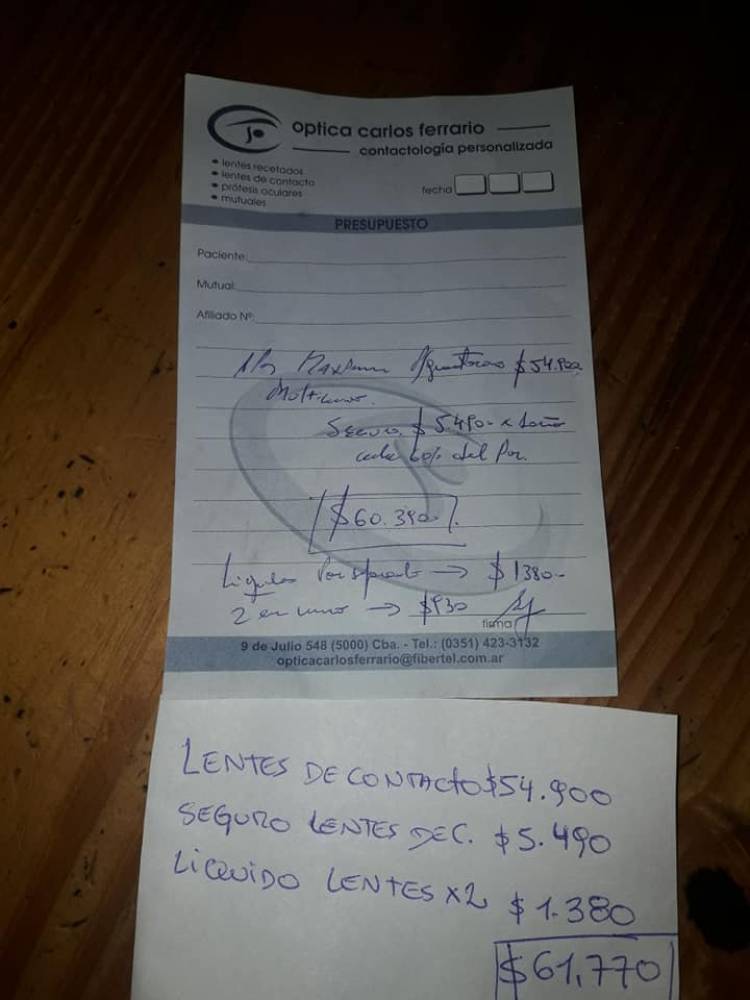 optica carlos ferrario
contactología personalizada
• lentes recetados
• lentes de contacto
• prótesis oculares
• mutuales
fecha
PRESUPUESTO
Paciente:
Mutual:
Afiliado Nº:
$54.900
Seguro $5.490-
cada del Por.
$60.390
Liquidos Por separado → $1380-
2 en uno → $930
firma
9 de Julio 548 (5000) Cba. - Tel.: (0351) 423-3132
opticacarlosferrario@fibertel.com.ar
LENTES DE CONTACTO $54.900
SEGURO LENTES DEC. $5.490
LIQUIDO LENTES X2 $1.380
$61,770